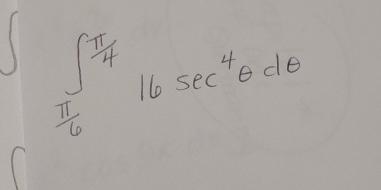 ∫_{π/6}^{π/4} 16 sec⁴θ dθ